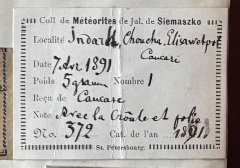 Coll de Météorites de Jul. de Siemaszko
Localité Indarck, Choucha, Elisawetpol
Caucase
Date 7 Avr 1891
Poids 5 gramm Nombre 1
Reçu de Caucase
Note Avec la Croûte et polie
No. 372 Cat. de l'an 1891
St. Pétersbourg.